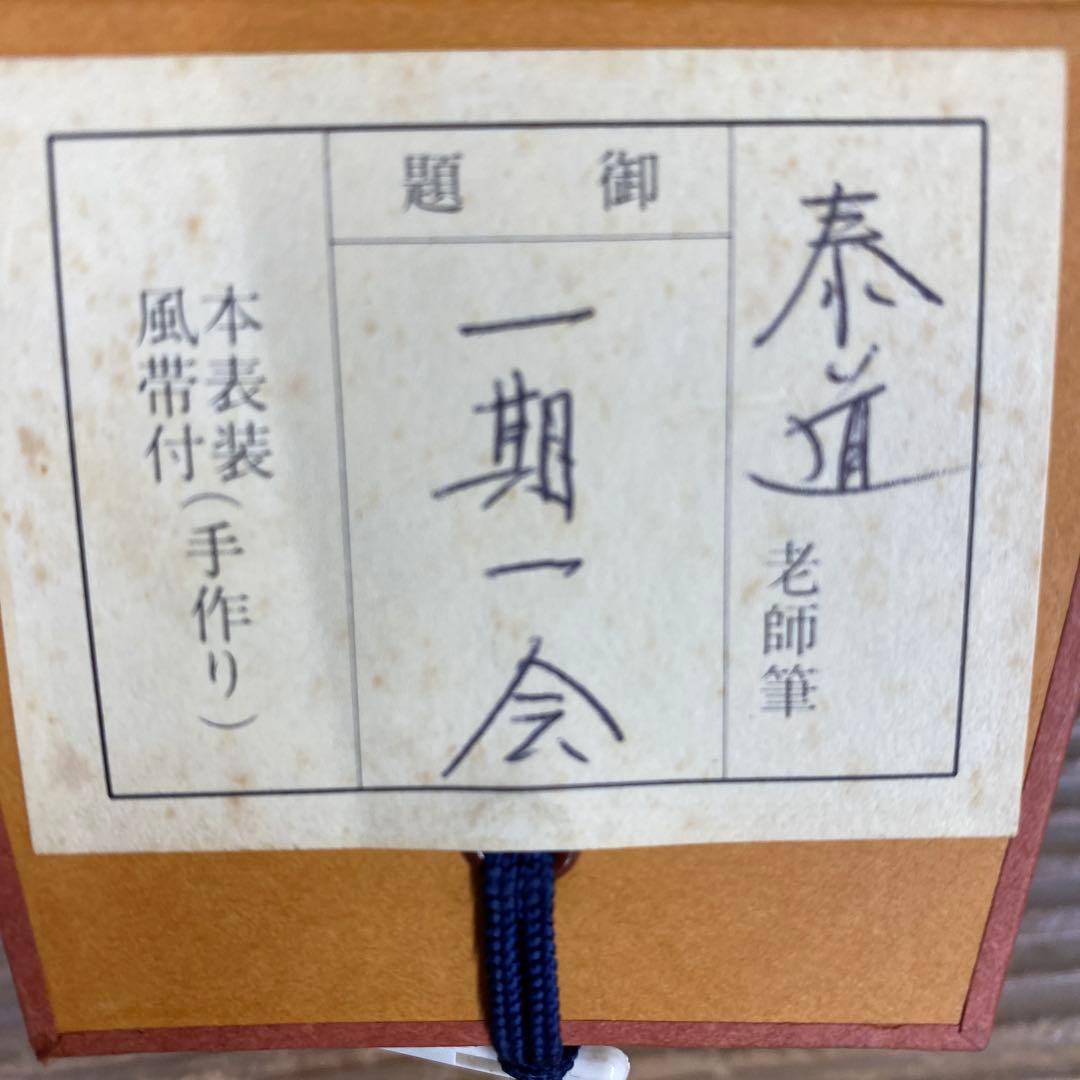 泰道 老師筆
御題
一期一会
本表装
風帯付(手作り)